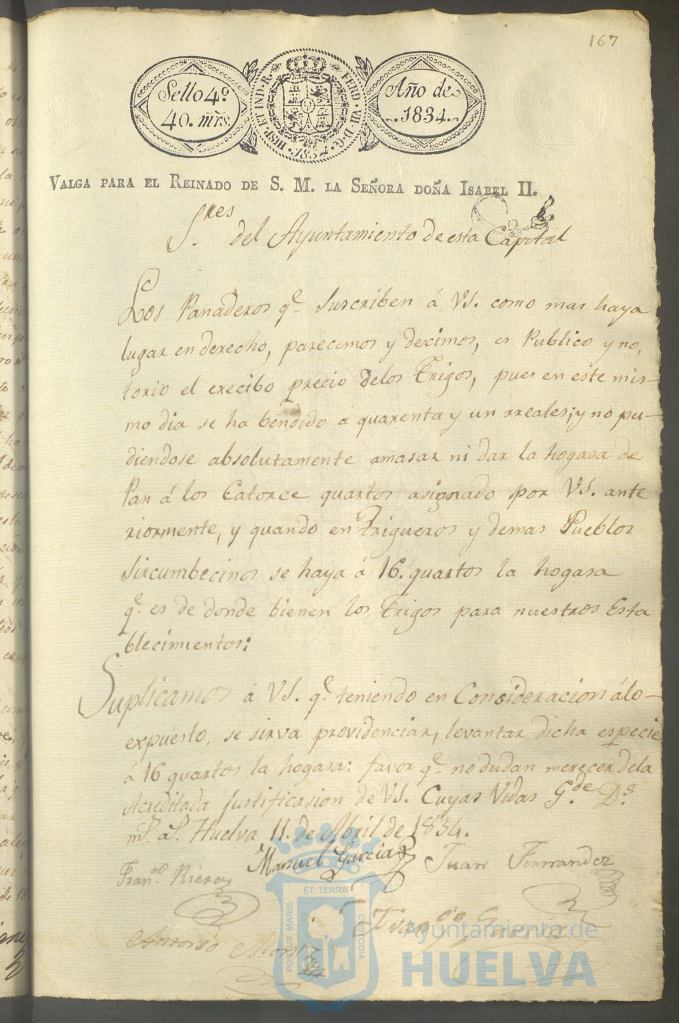 167
Sello 4º
40. mrs.
HISP. ET IND. R. FERD. VII. D. G.
1834
Año de
1834.
VALGA PARA EL REINADO DE S. M. LA SEÑORA DOÑA ISABEL II.
S.res del Ayuntamiento de esta Capital
Los Panaderos q.e Suscriben á VS. como mas haya
lugar en derecho, parecemos y decimos, es Publico y no,
torio el execibo precio delos Trigos, pues en este mis-
mo dia se ha bendido á quarenta y un rreales; y no pu-
diendose absolutamente amasar ni dar la hogasa de
Pan á los Catorce quartos asignado por VS. ante
riormente, y quando en Trigueros y demas Pueblos
Sircumbecinos se haya á 16. quartos la hogasa
q.e es de donde bienen los Trigos para nuestros Esta
blecimientos:
Suplicamos á VS. q.e teniendo en Consideracion álo-
expuesto, se sirva providenciar, levantar dicha especie
á 16 quartos la hogasa: favor q.e no dudan merecer dela
Acreditada Justificasion de VS. Cuyas Vidas G.de D.s
m.s a.s Huelva 11. de Abril de 1834.
Manuel Garcia Juan Fernandez
Fran.co Riero
Garcia
Antonio
PORTUS MARIS ET TERRE CUSTODIA
Ayuntamiento de
HUELVA